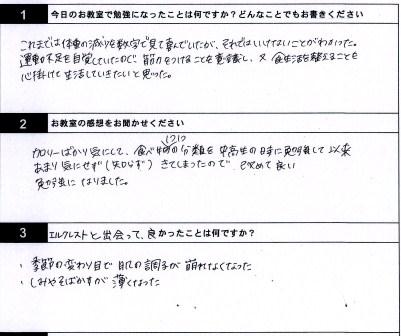 1 今日のお教室で勉強になったことは何ですか？どんなことでもお書きください
これまでは体重の減りを数字で見て喜んでいたが、それではいけないことがわかった。
運動不足を自覚していたので、筋力をつけることを意識し、又、食生活を整えることを
心掛けて生活していきたいと思った。
2 お教室の感想をお聞かせください
カロリーばかり気にして、食べ物の分類を中高生の時に勉強して以来
あまり気にせず(知らず)きてしまったので 改めて良い
勉強になりました。
3 エルクレストと出会って、良かったことは何ですか？
・季節の変わり目で肌の調子が崩れなくなった
・しみやそばかすが薄くなった